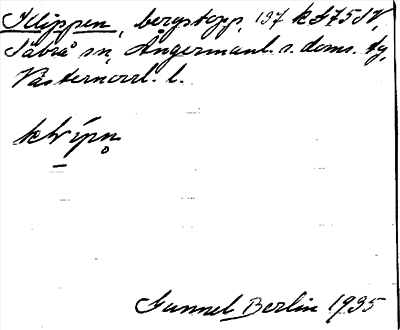 Klippen, bergstopp, 137 k S75 SV,
Säbrå sn, Ångermanl. s. doms. tg,
Västernorrl. l.
klìpn̥
Gunnel Berlin 1935